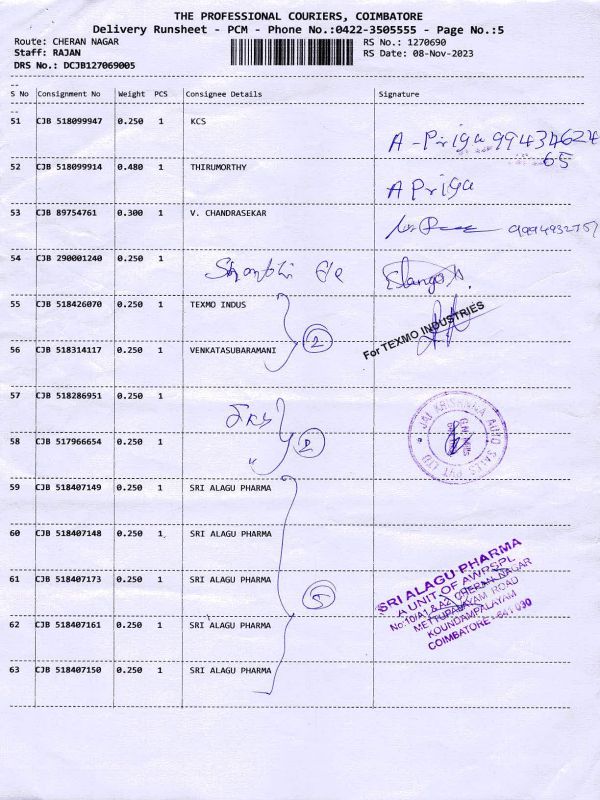 THE PROFESSIONAL COURIERS, COIMBATORE
Delivery Runsheet - PCM - Phone No.:0422-3505555 - Page No.:5
Route: CHERAN NAGAR RS No.: 1270690
Staff: RAJAN RS Date: 08-Nov-2023
DRS No.: DCJB127069005
S No Consignment No Weight PCS Consignee Details Signature
51 CJB 518099947 0.250 1 KCS
A - Priya 99434624
65
52 CJB 518099914 0.480 1 THIRUMORTHY
A Priya
53 CJB 89754761 0.300 1 V. CHANDRASEKAR
54 CJB 290001240 0.250 1
Elango
55 CJB 518426070 0.250 1 TEXMO INDUS
For TEXMO INDUSTRIES
2
56 CJB 518314117 0.250 1 VENKATASUBARAMANI
57 CJB 518286951 0.250 1
JAI KRISHNAA AUTO SALES PVT LTD
58 CJB 517966654 0.250 1
"
2
59 CJB 518407149 0.250 1 SRI ALAGU PHARMA
60 CJB 518407148 0.250 1 SRI ALAGU PHARMA
61 CJB 518407173 0.250 1 SRI ALAGU PHARMA
5
SRI ALAGU PHARMA
A UNIT OF AWPSPL
No:10/A1 & A2 CHERAN NAGAR
METTUPALAYAM ROAD
KOUNDAMPALAYAM
COIMBATORE - 641 030
62 CJB 518407161 0.250 1 SRI ALAGU PHARMA
63 CJB 518407150 0.250 1 SRI ALAGU PHARMA